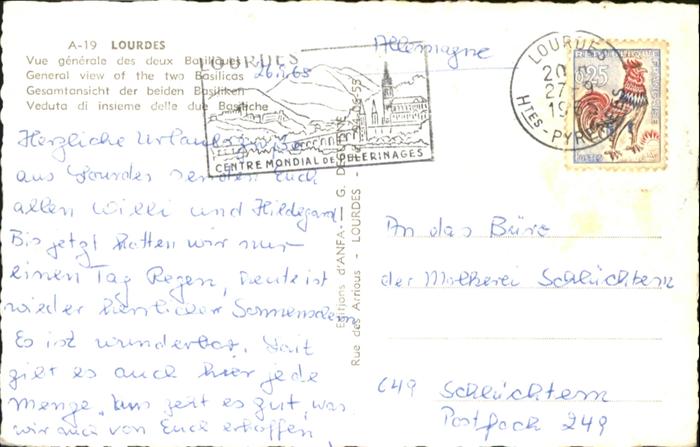 A-19 LOURDES
Vue générale des deux Basiliques
General view of the two Basilicas
Gesamtansicht der beiden Basiliken
Veduta di insieme delle due Basiliche
LOURDES
CENTRE MONDIAL DE PÈLERINAGES
Allemagne
LOURDES
20
27-9
19
HTES-PYRÉNÉES
0,25
Herzliche Urlaubsgrüße
aus Lourdes senden Euch
allen Willi und Hildegard
Bis jetzt hatten wir nur
einen Tag Regen, heute ist
wieder herrlicher Sonnenschein
Es ist wunderbar.
gibt es auch hier jede
Menge. Uns geht es gut, was
wir auch von Euch erhoffen
Editions d'ANFA
Rue des Arrious - LOURDES
An das Büro
der Molkerei Schlüchtern
649 Schlüchtern
Postfach 249